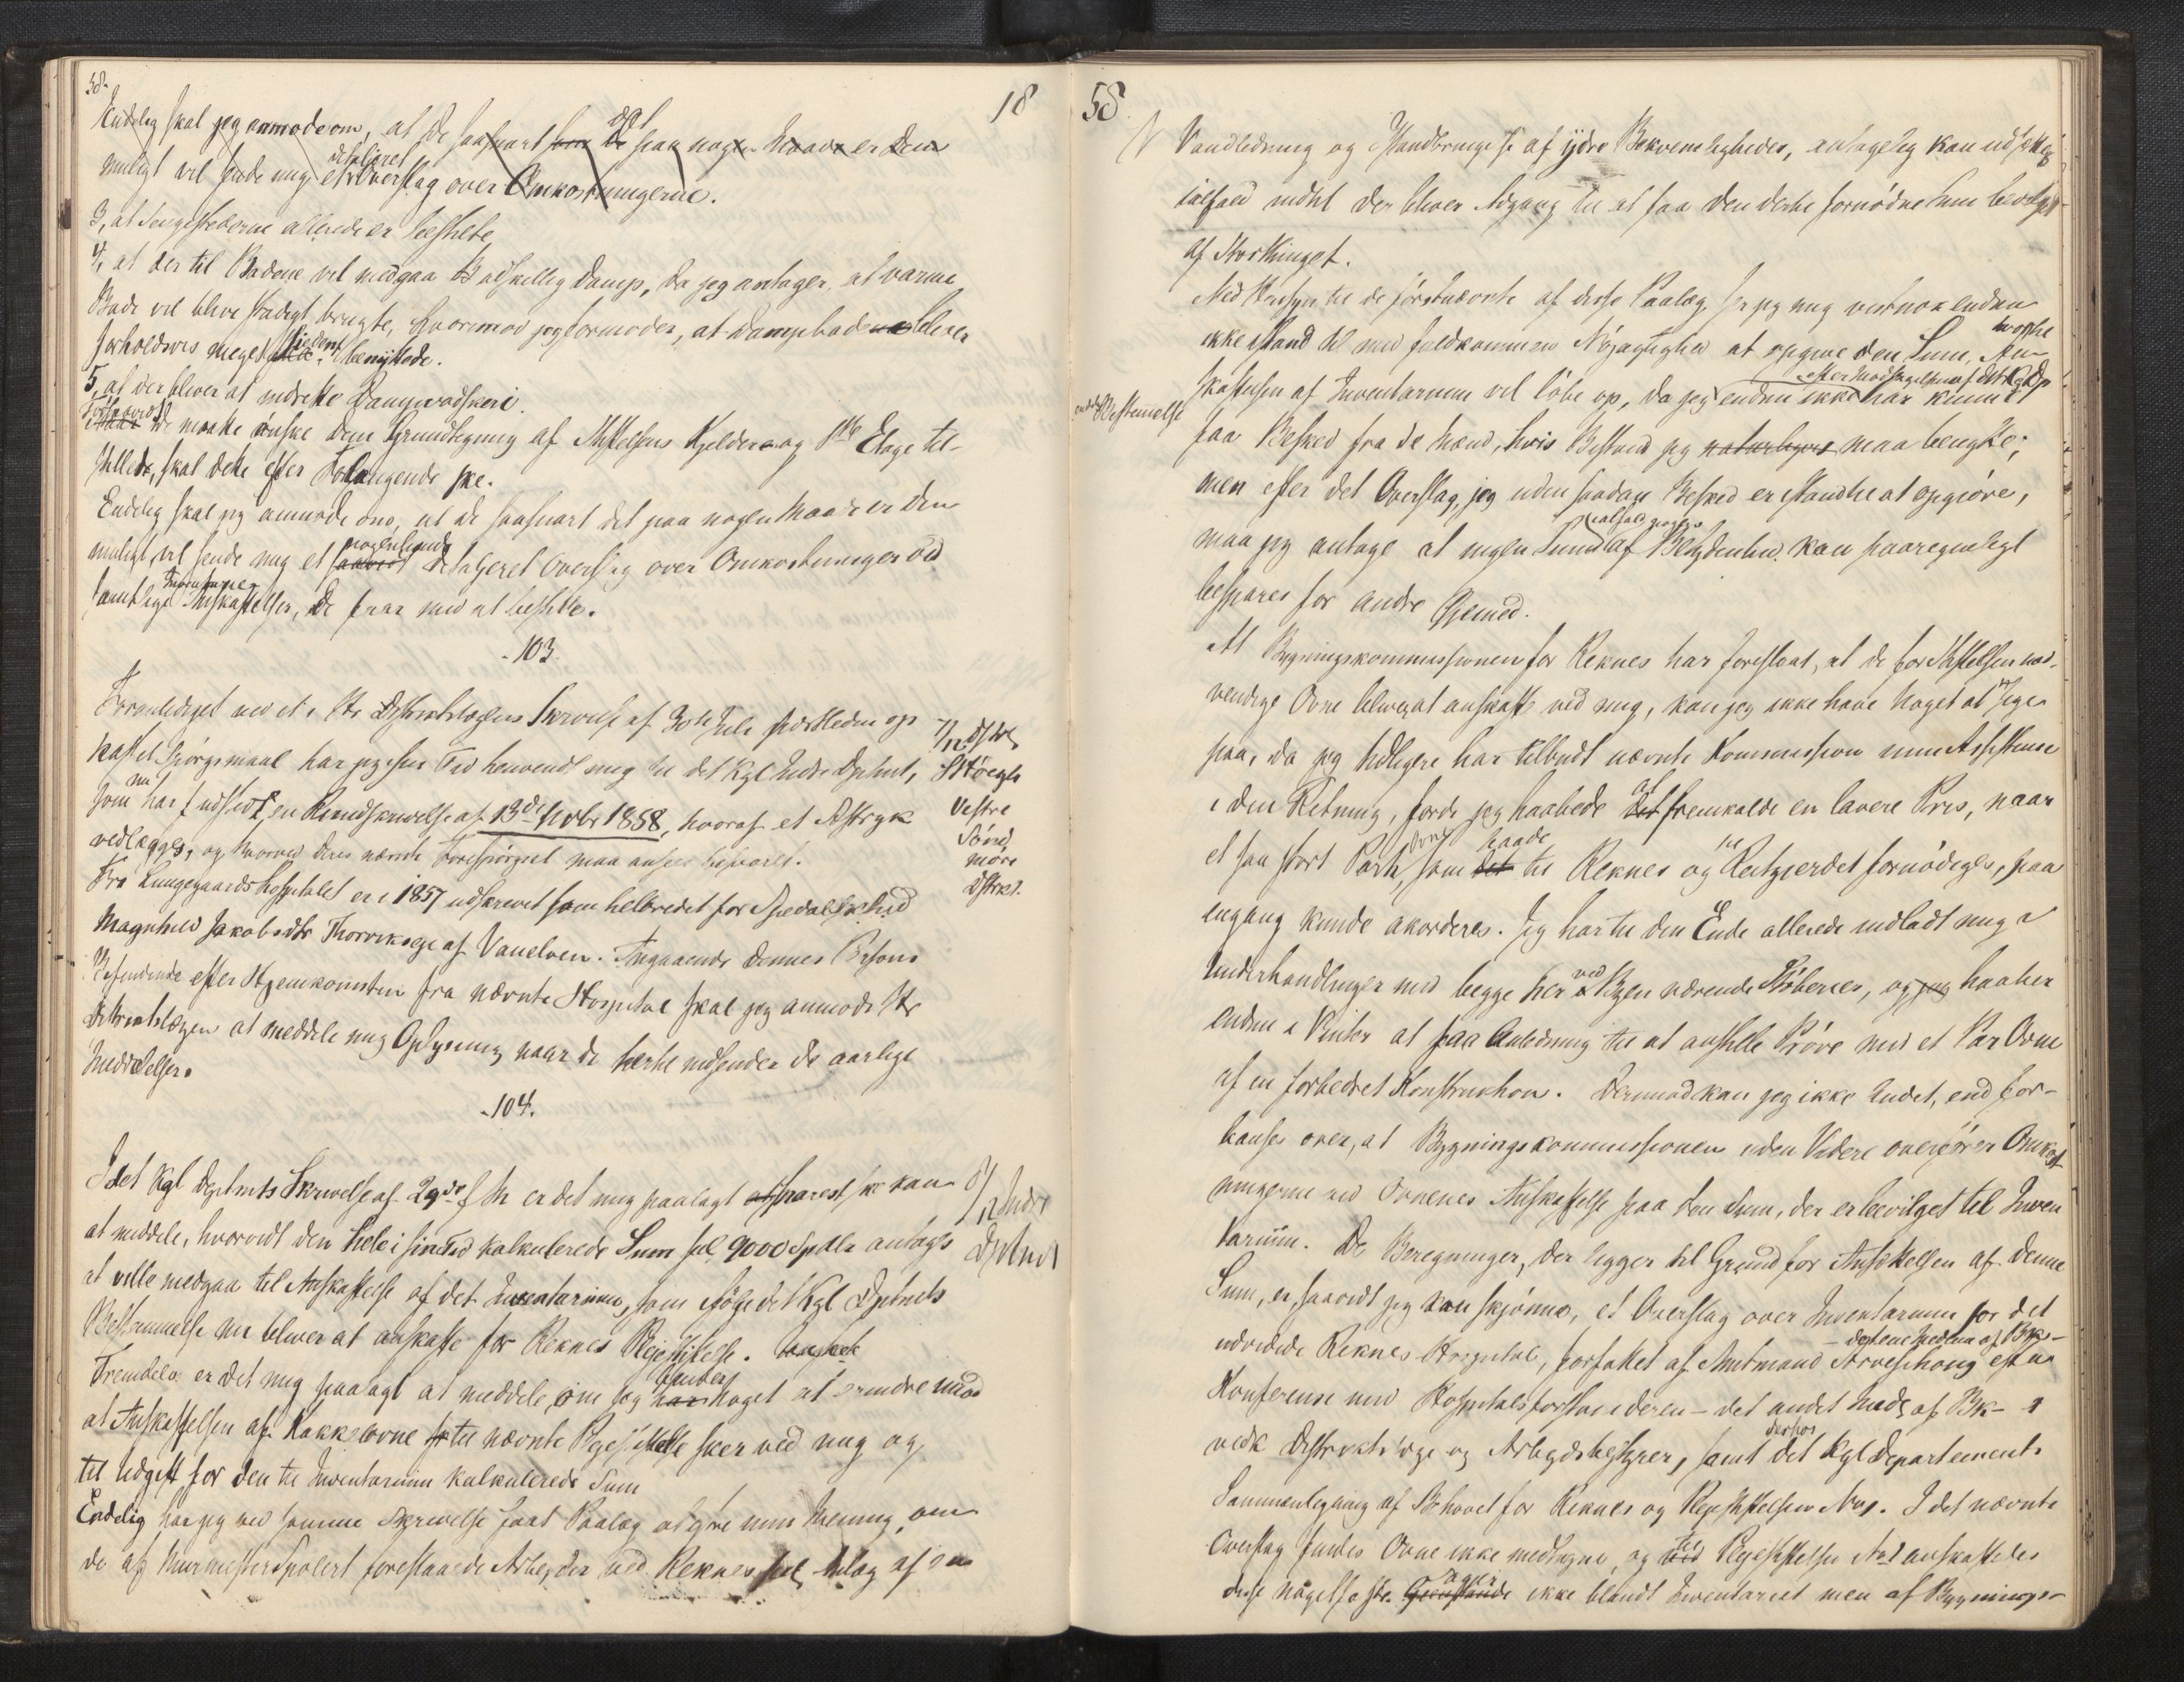 58.
18
Endelig skal jeg anmode om, at De saasnart som De det paa nogen Maade er Dem
muligt vil sende mig et detaljeret Overslag over Omkostningerne.
3, at Sengestederne allerede er bestilte,
4, at der til Badene vil medgaa adskellig Damp, da jeg antager, at varme
Bade vil blive stadigt brugte, hvorimod jeg formoder, at Dampbadene bliver
forholdsvis meget sjeldent benyttede.
5, at der bliver at indrette Dampvadskeri.
Forsaavidt De maatte ønske Dem Grundtegning af Stiftelsens Kjelder og 1ste Etage til-
stillet, skal dette efter Forlangende ske.
Endelig skal jeg anmode om, at De saasnart det paa nogen Maade er Dem
muligt, vil sende mig et saavidt nogenlunde detaljeret Overslag over Omkostninger ved
samtlige Inventarie Anskaffelser, De faar med at bestille.
- 103.
Foranlediget ved et i Hr Distriktslægens Skrivelse af 30te Juli sidstleden op
kastet Spørgsmaal har jeg i sin Tid henvendt mig til det Kgl Indre Dptmt,
som nu har udstedt en Rundskrivelse af 13de Novbr 1858, hvoraf et Aftryk
vedlægges, og hvorved Deres nævnte Forespørgsel maa ansees besvaret.
Fra Lungegaardshospitalet er i 1857 udskrevet som helbredet for Spedalskhed
Magnhild Jakobsdtr Thorvikeje af Vanelven. Angaaende dennes Persons
Befindende efter Hjemkomsten fra nævnte Hospital skal jeg anmode Hr
Distriktslægen at meddele mig Oplysning naar De hertil indsender de aarlige
Meddelelser.
7/12 Dstr
Stoegh
Vestre
Sønd
møre
Dstrkt.
- 104.
I det Kgl Dptmts Skrivelse af 29de f M er det mig paalagt at snarest ske kan
at meddele, hvorvidt den hele i sin Tid kalkulerede Sum sel 9000 Spdlr antages
at ville medgaa til Anskaffelse af det Inventarium, som ifølge det Kgl Dptmts
Bestemmelse nu bliver at anskaffe for Reknes Plejestiftelse.
Fremdeles er det mig paalagt at meddele, om jeg har finder noget at erindre imod
at Anskaffelsen af Kakkelovne til nævnte Plejestiftelse sker ved mig og
til Udgift for den til Inventarium kalkulerede Sum
Endelig har jeg ved samme Skrivelse faaet Paalæg at give min Mening, om
de af Murmester Spolert forestaaede Arbejder ved Reknes, sel. Anlæg af en
8/12 Indre
Dptmt
58.
Vandledning og Istandbringelse af ydre Bekvemligheder, antagelig kan udsættes
ialfald indtil der bliver Adgang til at faa den dertil fornødne Sum bevilget
af Storthinget.
Med Hensyn til de førstnævnte af disse Paalæg ser jeg mig vistnok endnu
ikke istand til med fuldkommen Nøjagtighed at opgive den Sum, hvortil An-
skaffelsen af Inventarium vil løbe op, da jeg efter Modtagelsen af det Kgl Dp
endelige Bestemmelse
endnu ikke har kunnet
faa Besked fra de Mænd, hvis Bistand jeg naturligvis maa benytte;
men efter det Overslag, jeg uden saadan Besked er istand til at opgjøre,
maa jeg antage at ingen Sum ialfald nogen af Betydenhed kan paaregneligt
bespares for andre Øiemed.
At Bygningskommissionen for Reknes har foreslaaet, at de for Stiftelsen nød-
vendige Ovne bliver at anskaffe ved mig, kan jeg ikke have noget at sige
paa, da jeg tidligere har tilbudt nævnte Kommission min Assistense
i den Retning, fordi jeg haabede det at fremkalde en lavere Pris, naar
et saa stort Parti Ovne, som det baade til Reknes og til Reitgjerdet fornødiges, paa
engang kunde akorderes. Jeg har til den Ende allerede indladt mig i
Underhandlinger med begge her ved Byen værende Støberier, og jeg haaber
endnu i Vinter at faa Anledning til at anstille Prøve med et Par Ovne
af en forbedret Konstruktion. Derimod kan jeg ikke Andet, end for-
bauses over, at Bygningskommissionen uden Videre overfører Omkost
ningerne ved Ovnenes Anskaffelse paa den Sum, der er bevilget til Inven
tarium. De Beregninger, der ligger til Grund for Ansettelsen af denne
Sum, er, saavidt jeg kan skjønne, et Overslag over Inventarium for det
udvidede Reknes Hospital, forfattet af Amtmand Arveschoug - det ene Medlem af Bk - efter
Konference med Hospitalsforstanderen - det andet Medl, af Bk - 
vedk Distriktslæge og Arbejdsbestyrer, samt derhos det Kgl Departements
Sammenligning af Behovet for Reknes og Plejestiftelsen No 1. I det nævnte
Overslag findes Ovne ikke medtagne, og ved til Plejestiftelsen No 1 anskaffedes
disse nagelfaste Gjenstande Sager ikke blandt Inventariet men af Bygnings-